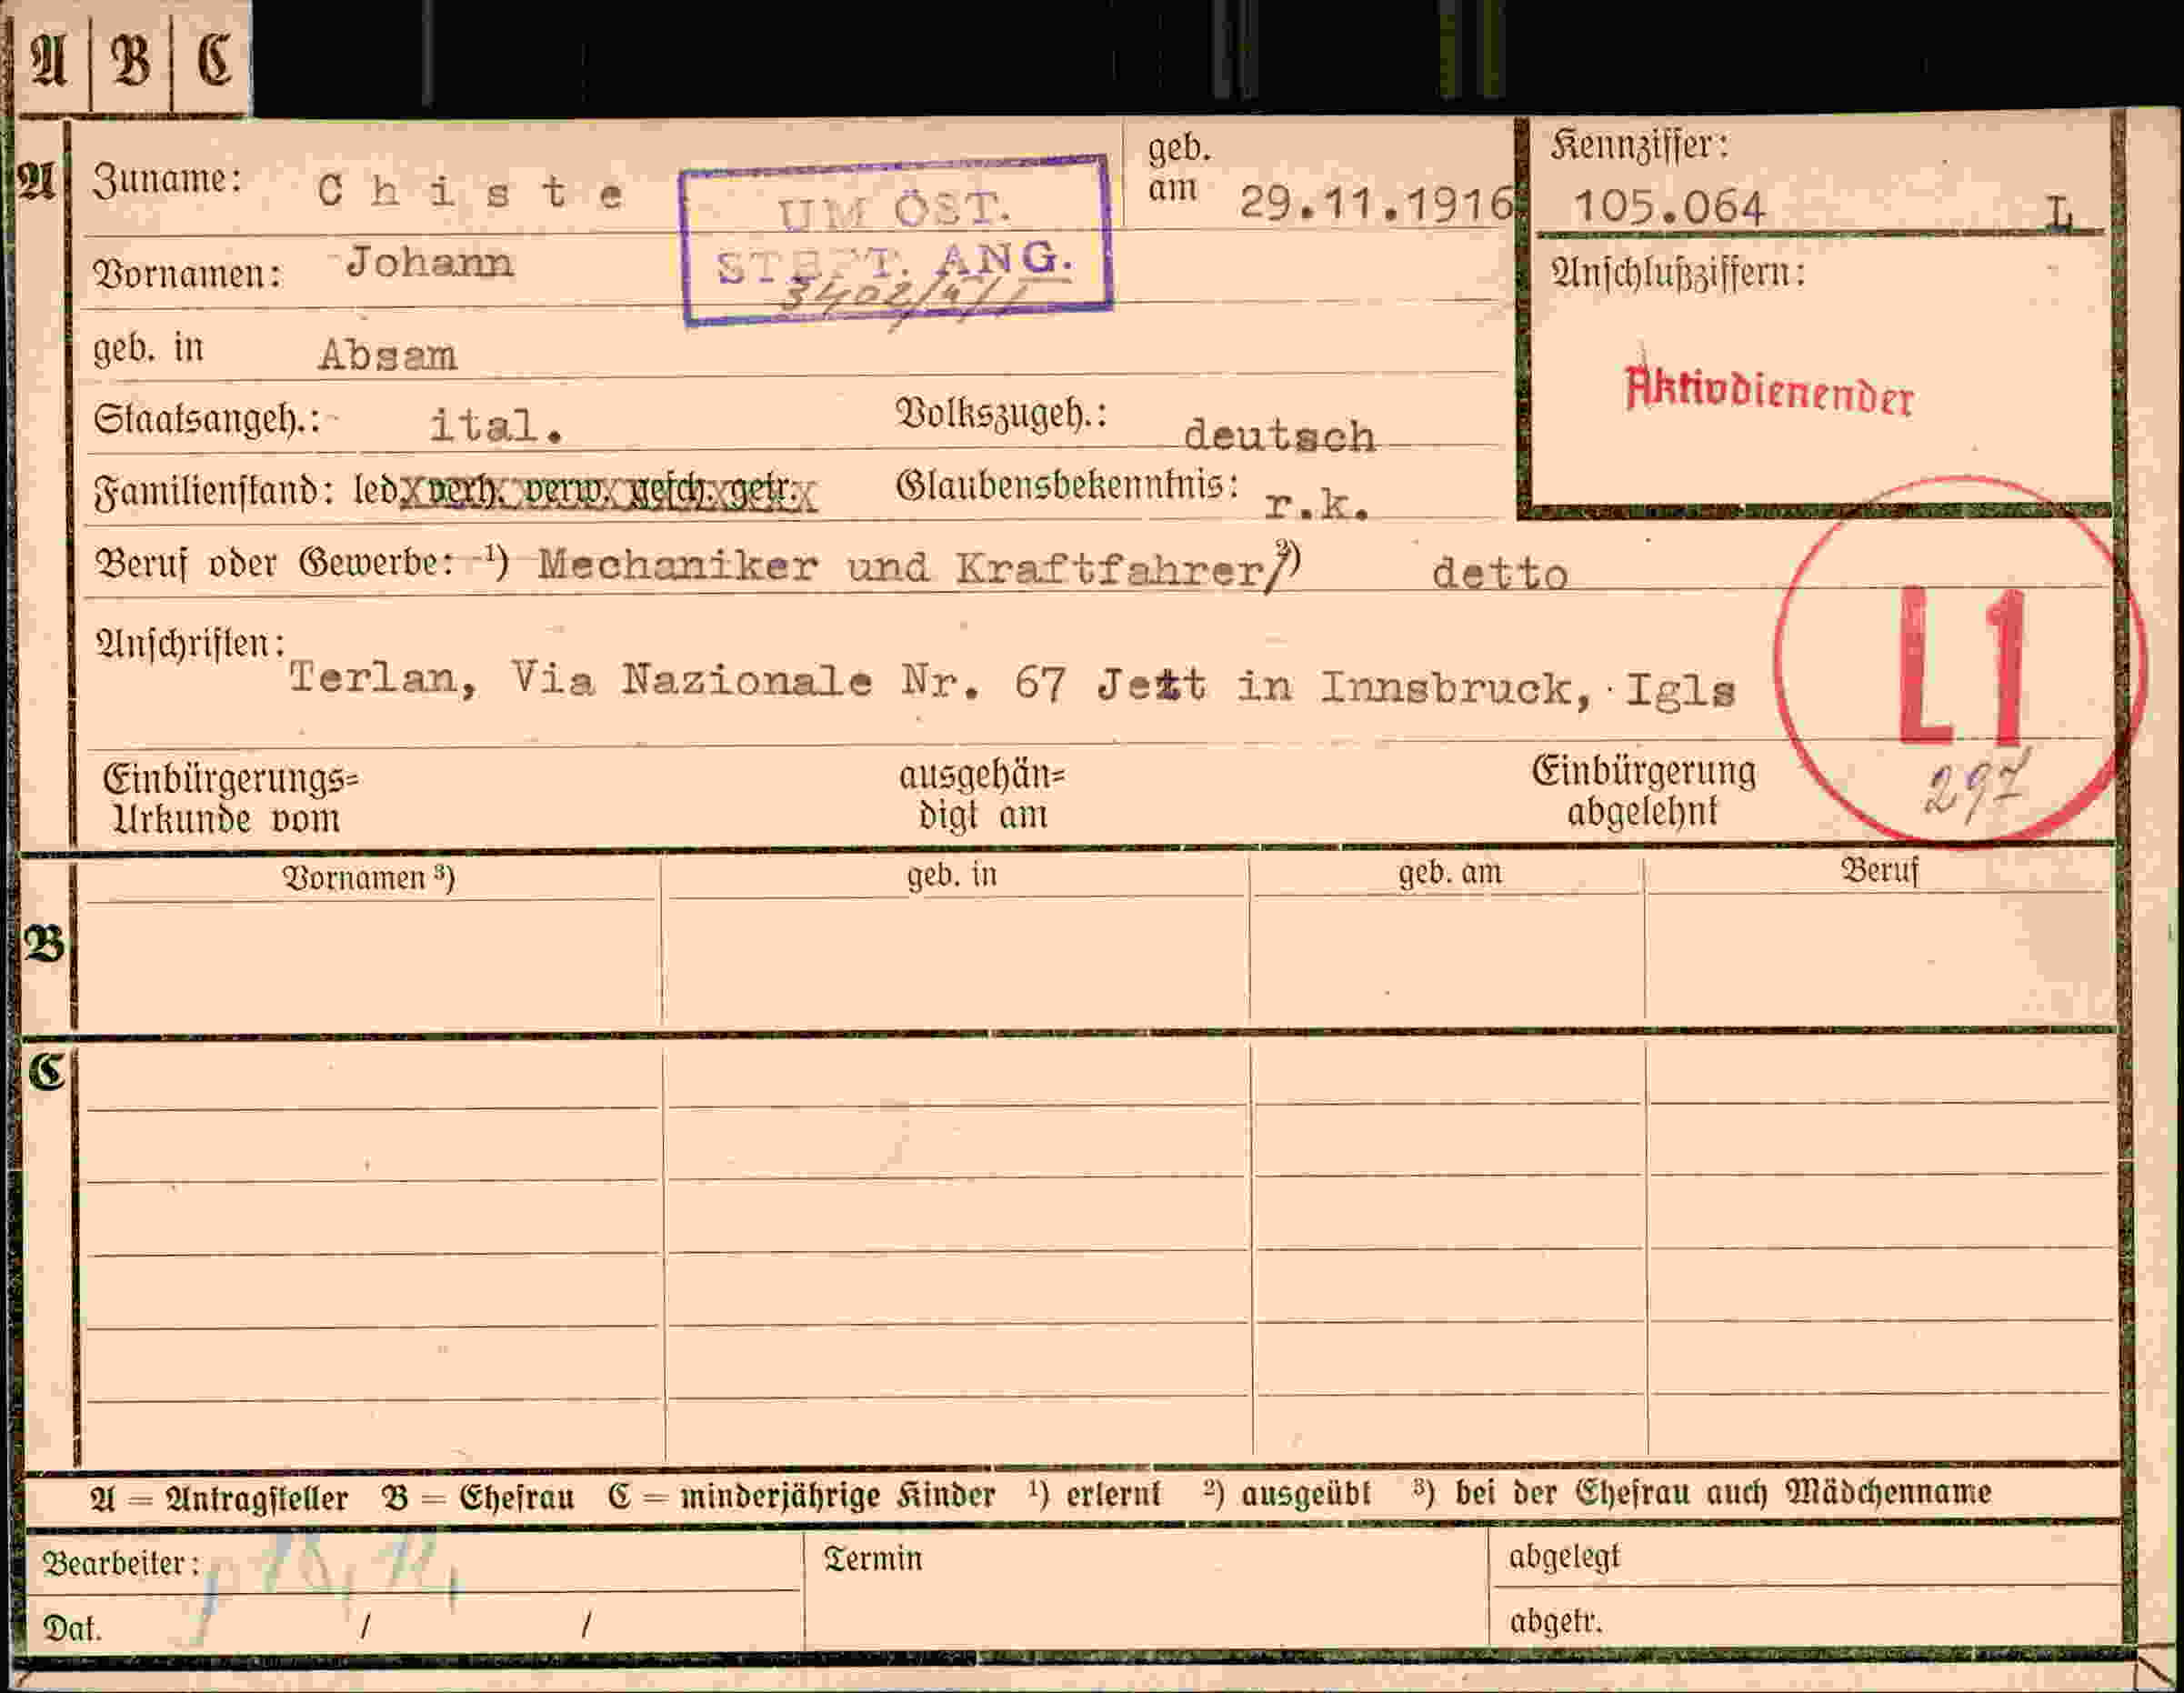 A B C
A Zuname: Chiste geb. am 29.11.1916 Kennziffer: 105.064 L
UM ÖST.
ST. ANG.
Vornamen: Johann Anschlußziffern:
geb. in Absam
Aktivdienender
Staatsangeh.: ital. Volkszugeh.: deutsch
Familienstand: led. verh. verw. gesch. getr. Glaubensbekenntnis: r.k.
Beruf oder Gewerbe: ¹) Mechaniker und Kraftfahrer ²) detto
Anschriften: Terlan, Via Nazionale Nr. 67 Jetzt in Innsbruck, Igls
L1
297
Einbürgerungs= ausgehän= Einbürgerung
Urkunde vom digt am abgelehnt
Vornamen ³) geb. in geb. am Beruf
B
C
A = Antragsteller B = Ehefrau C = minderjährige Kinder ¹) erlernt ²) ausgeübt ³) bei der Ehefrau auch Mädchenname
Bearbeiter: Termin abgelegt
Dat. / / abgetr.